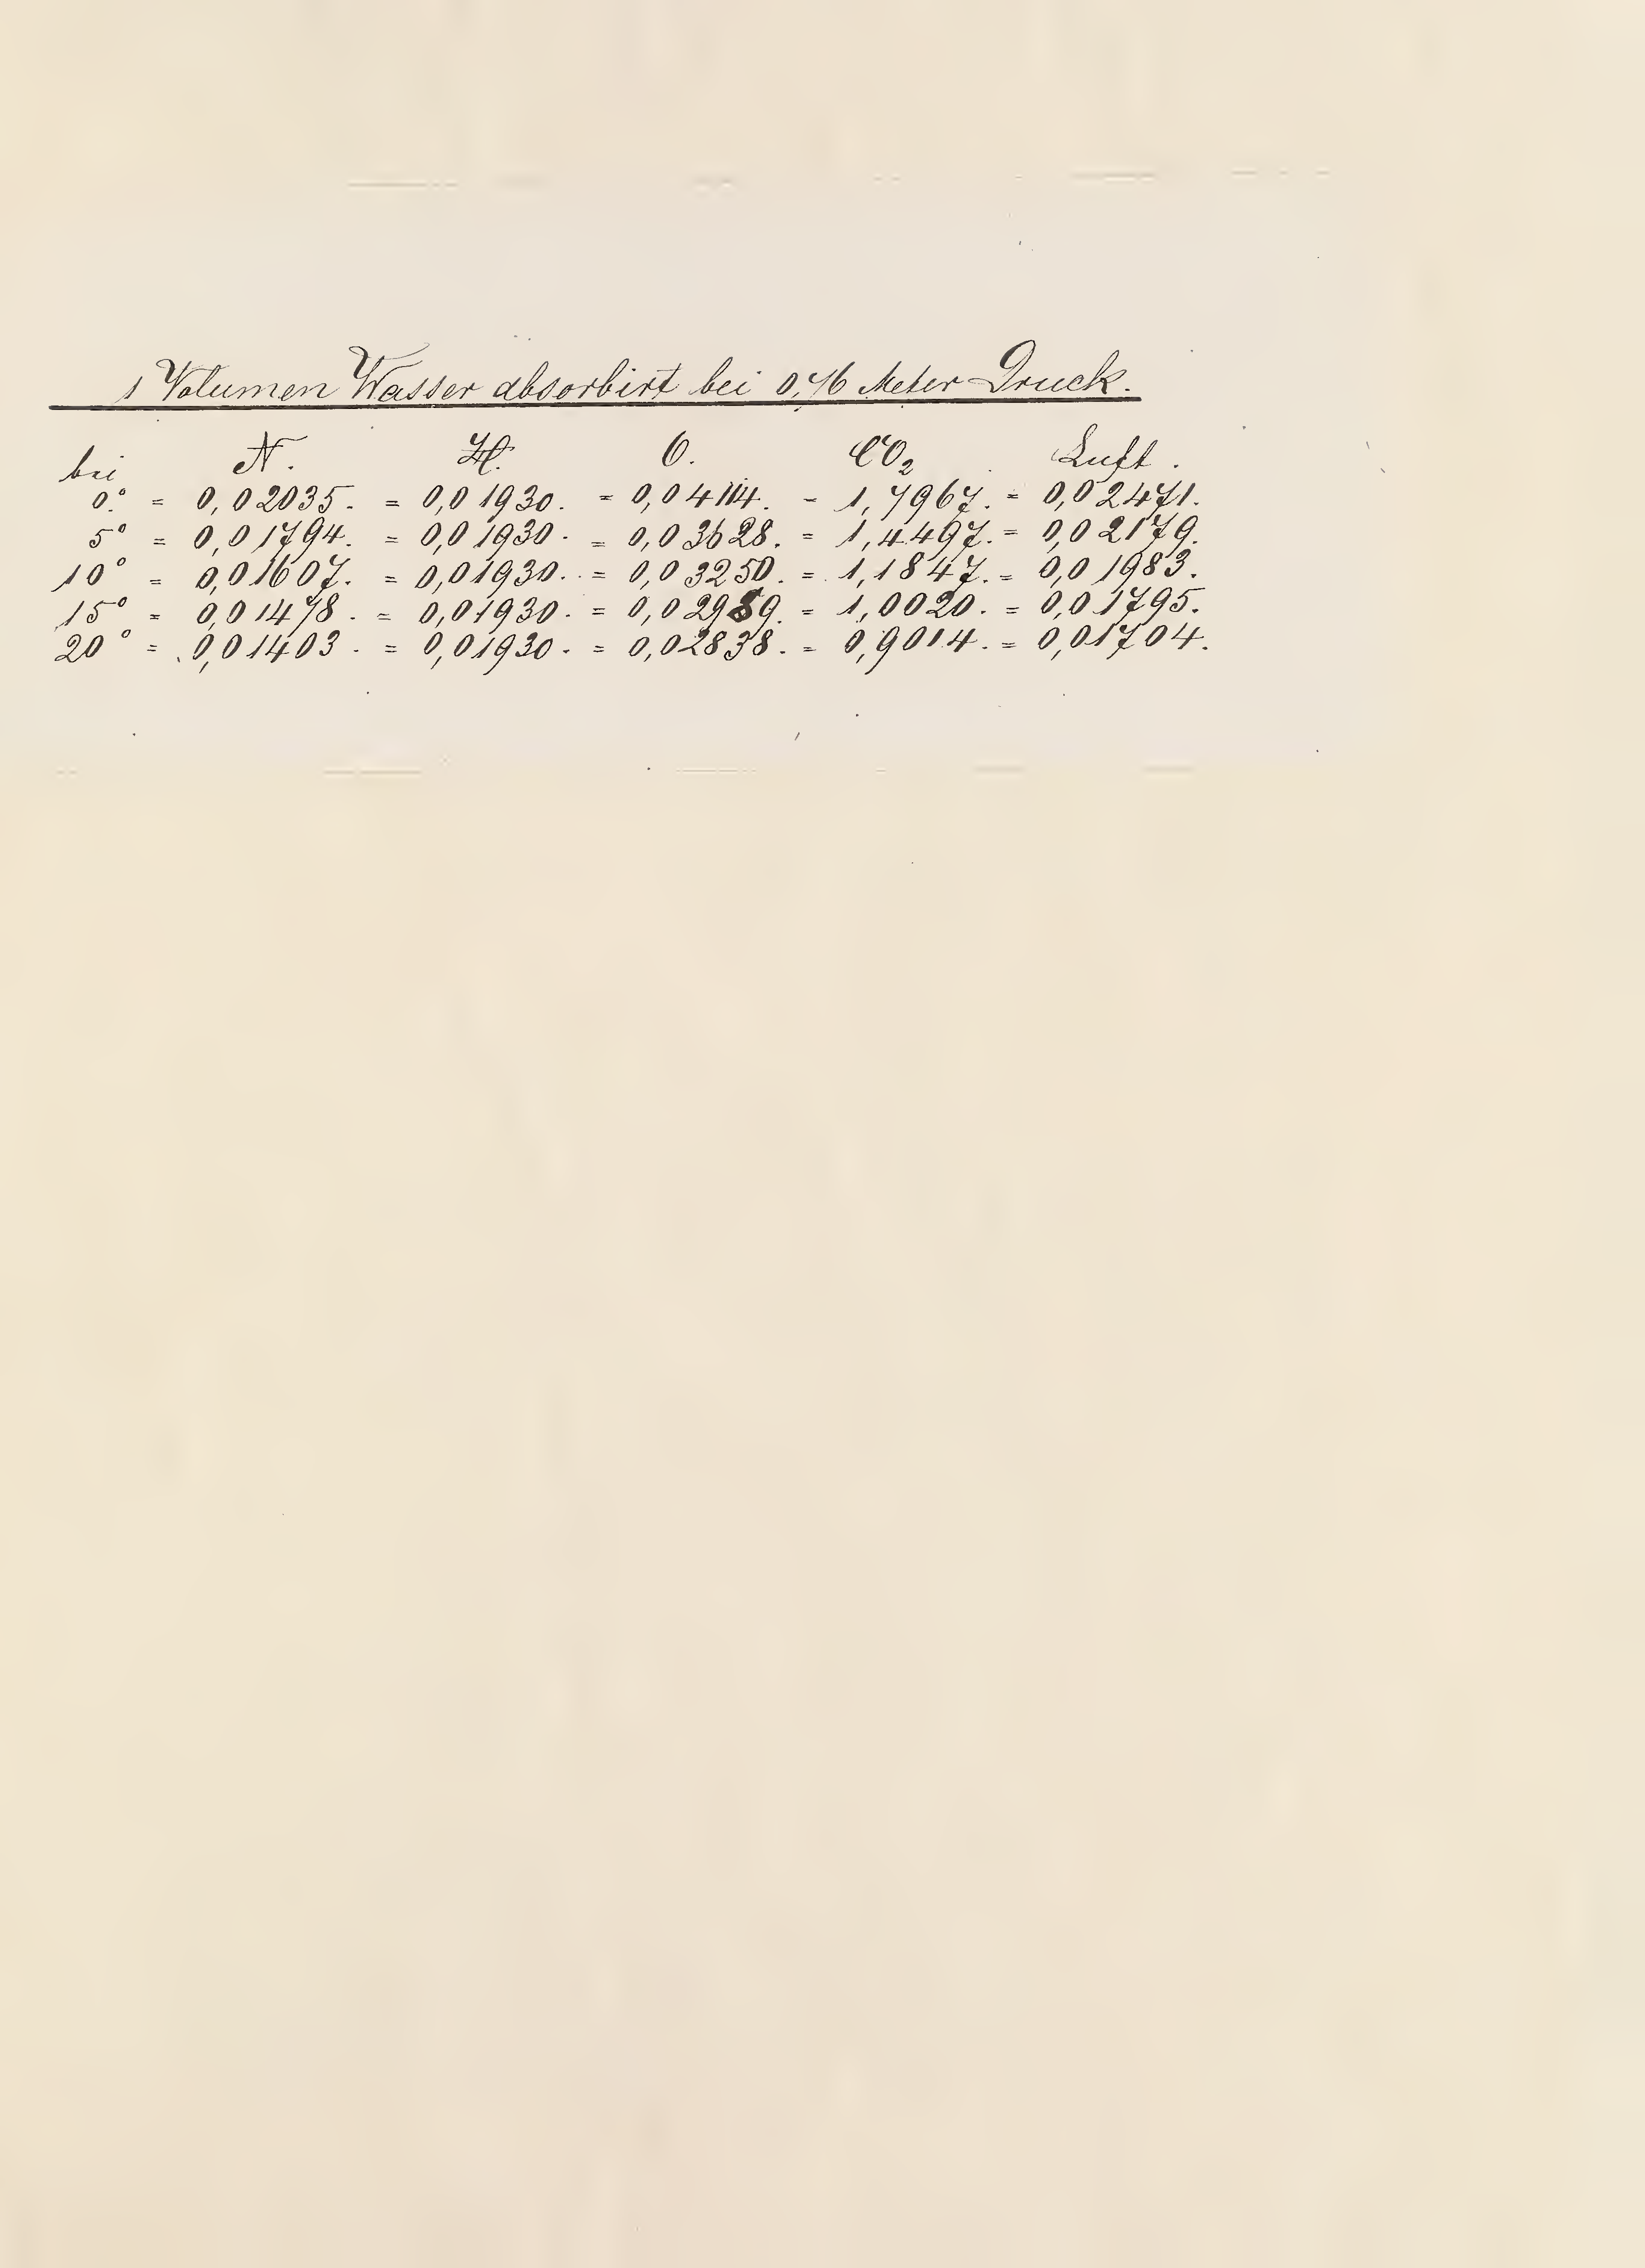 1 Volumen Wasser absorbirt bei 0,76 Meter Druck.
bei N. H. O. CO₂ Luft.
0.° = 0,02035. = 0,01930. = 0,04114. = 1,7967. = 0,02471.
5° = 0,01794. = 0,01930. = 0,03628. = 1,4497. = 0,02179.
10° = 0,01607. = 0,01930. = 0,03250. = 1,1847. = 0,01983.
15° = 0,01478. = 0,01930. = 0,02989. = 1,0020. = 0,01795.
20° = 0,01403. = 0,01930. = 0,02838. = 0,9014. = 0,01704.